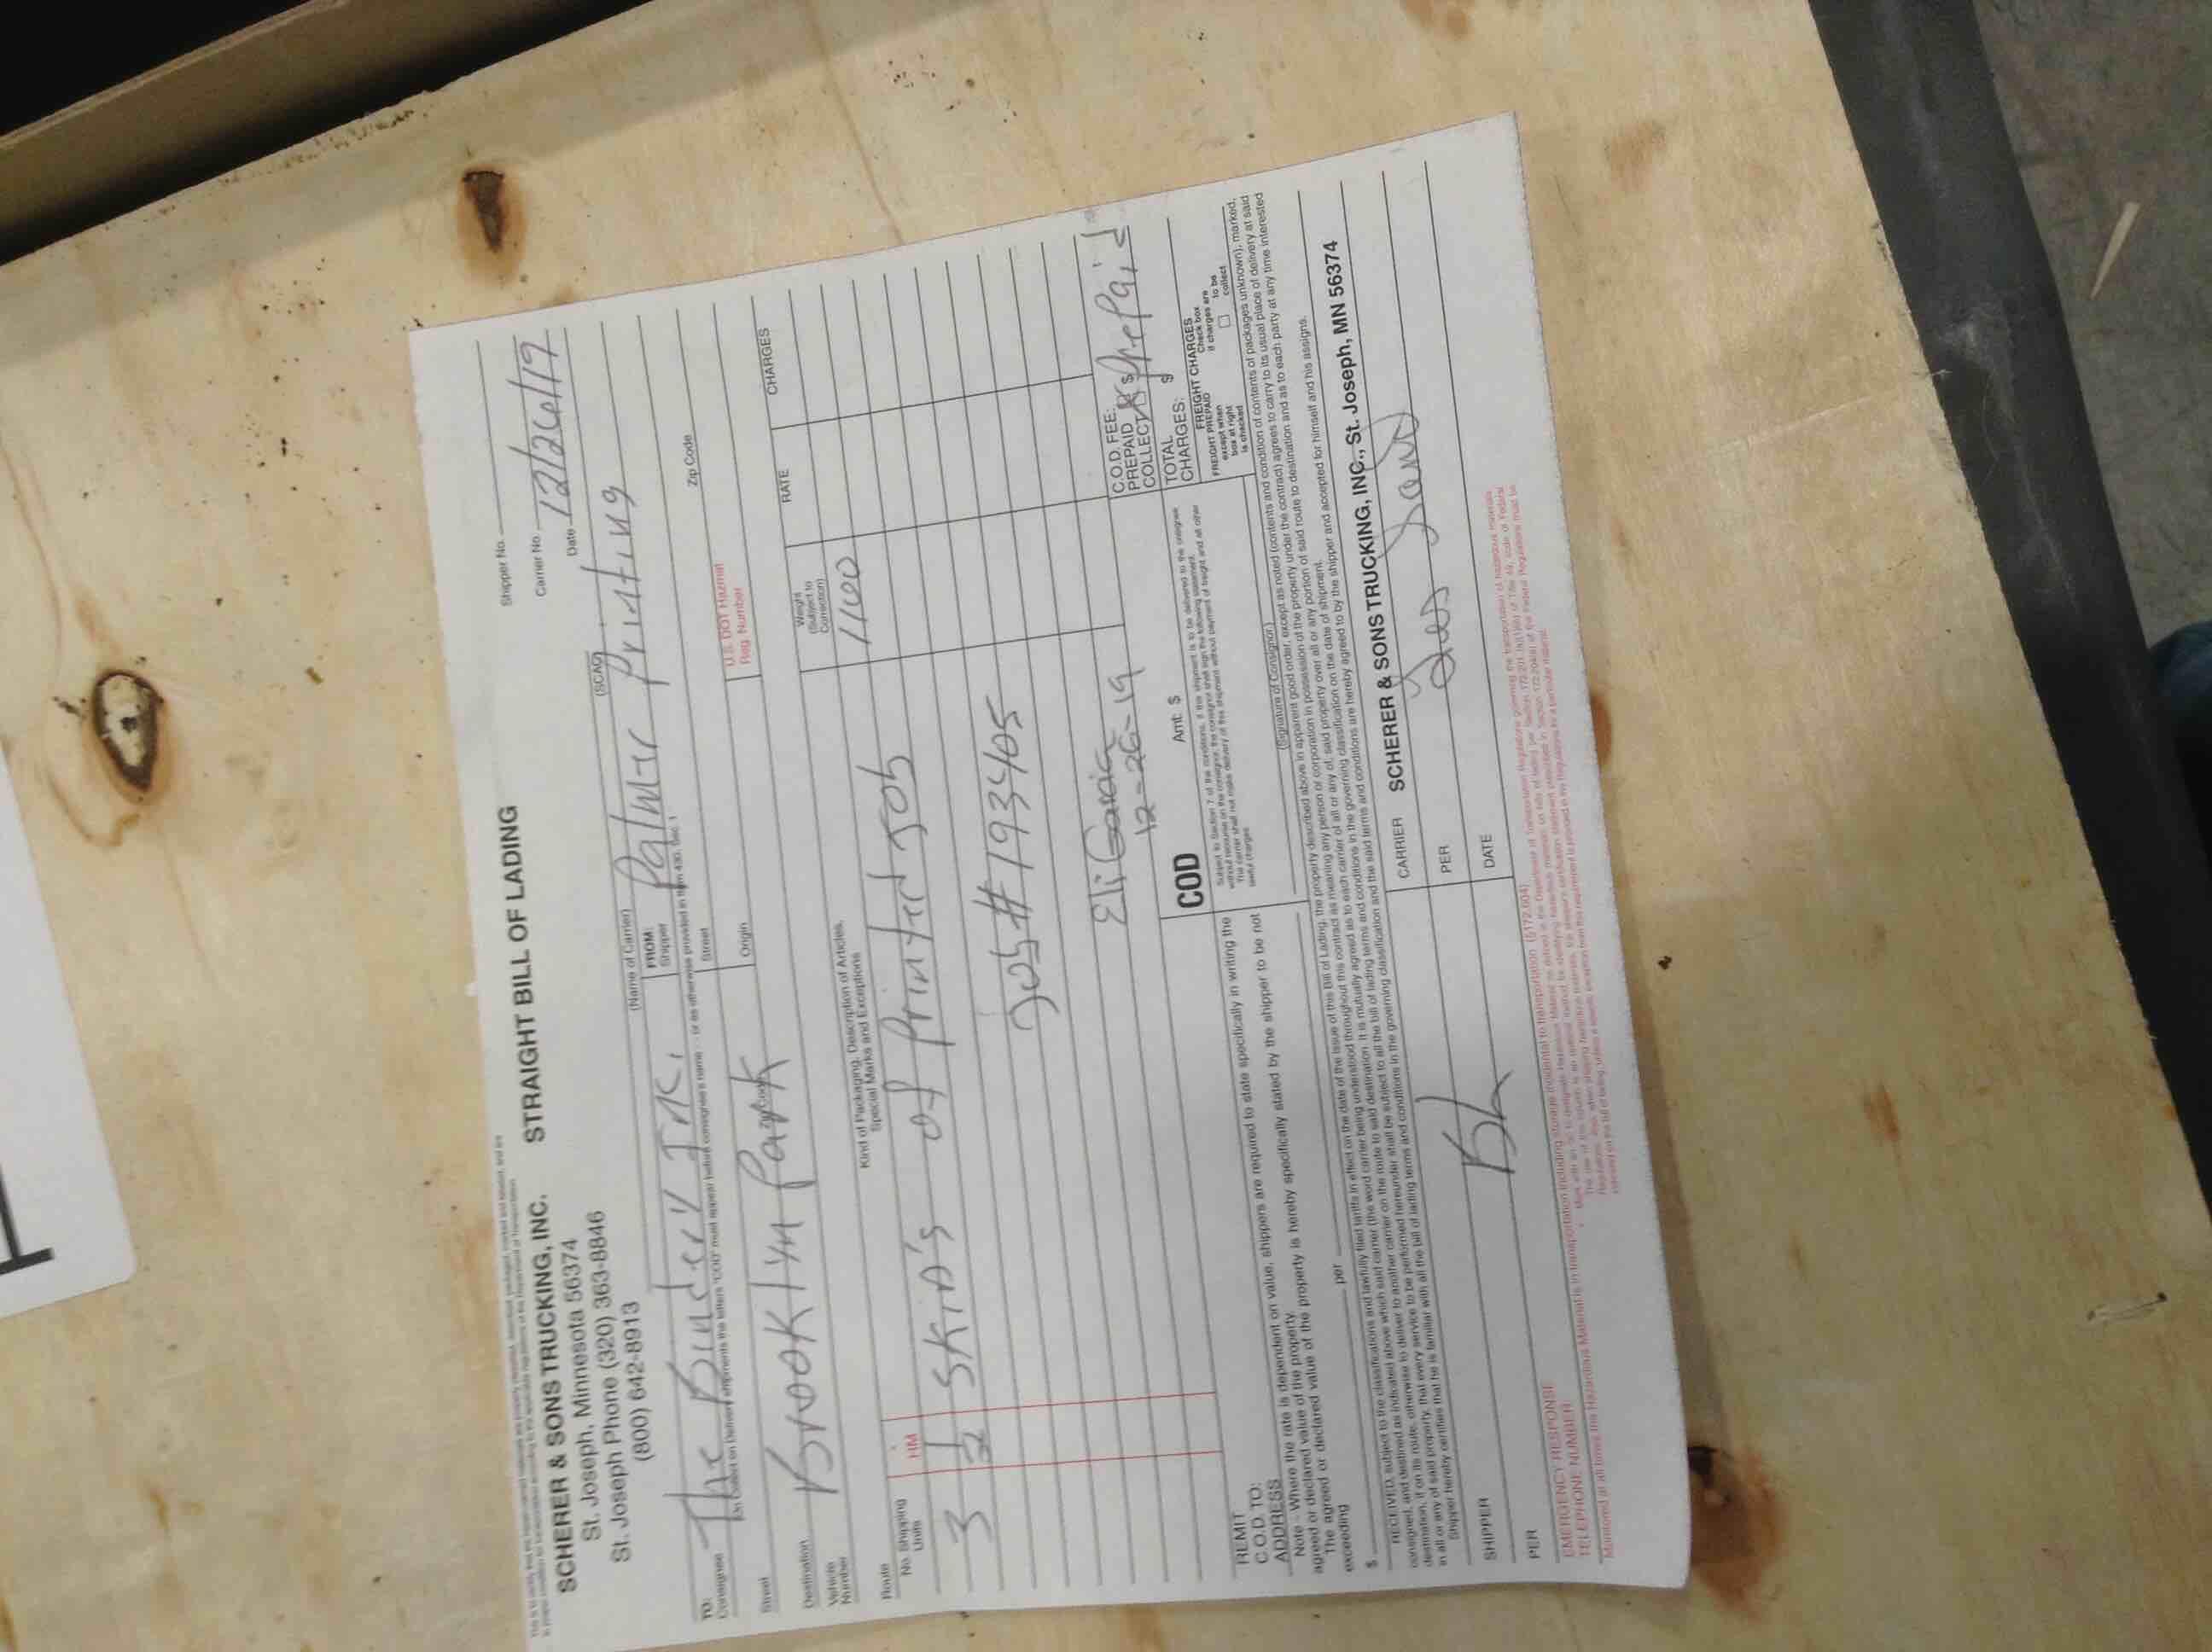 SCHERER & SONS TRUCKING, INC. STRAIGHT BILL OF LADING
St. Joseph, Minnesota 56374
St. Joseph Phone (320) 363-8846
(800) 642-8913
Shipper No.
Carrier No.
Date 12/26/19
(Name of Carrier) (SCAC)
TO: Consignee The Bindery Inc.
FROM: Shipper Palmer Printing
Street
Street
Zip Code
Destination Brooklyn Park Zip Code
Origin
U.S. DOT Hazmat Reg. Number
Route
Vehicle Number
No. Shipping Units
HM
Kind of Packaging, Description of Articles,
Special Marks and Exceptions
Weight (Subject to Correction)
RATE
CHARGES
3 1/2 Skid's of Printed Job 1100
Job # 193405
Eli Garcia
12-26-19
REMIT
C.O.D. TO:
ADDRESS
COD Amt: $
C.O.D. FEE:
PREPAID
COLLECT $ PrePaid
TOTAL CHARGES: $
Note - Where the rate is dependent on value, shippers are required to state specifically in writing the
agreed or declared value of the property.
The agreed or declared value of the property is hereby specifically stated by the shipper to be not
exceeding
$ per
(Signature of Consignor)
FREIGHT CHARGES
FREIGHT PREPAID except when box at right is checked
Check box if charges are to be collect
RECEIVED, subject to the classifications and lawfully filed tariffs in effect on the date of the issue of this Bill of Lading, the property described above in apparent good order, except as noted (contents and condition of contents of packages unknown), marked,
consigned, and destined as indicated above which said carrier (the word carrier being understood throughout this contract as meaning any person or corporation in possession of the property under the contract) agrees to carry to its usual place of delivery at said
destination, if on its route, otherwise to deliver to another carrier on the route to said destination. It is mutually agreed as to each carrier of all or any of, said property over all or any portion of said route to destination and as to each party at any time interested
in all or any of said property, that every service to be performed hereunder shall be subject to all the bill of lading terms and conditions in the governing classification on the date of shipment.
Shipper hereby certifies that he is familiar with all the bill of lading terms and conditions in the governing classification and the said terms and conditions are hereby agreed to by the shipper and accepted for himself and his assigns.
SHIPPER
CARRIER SCHERER & SONS TRUCKING, INC., St. Joseph, MN 56374
PER
PER
DATE
EMERGENCY RESPONSE
TELEPHONE NUMBER: